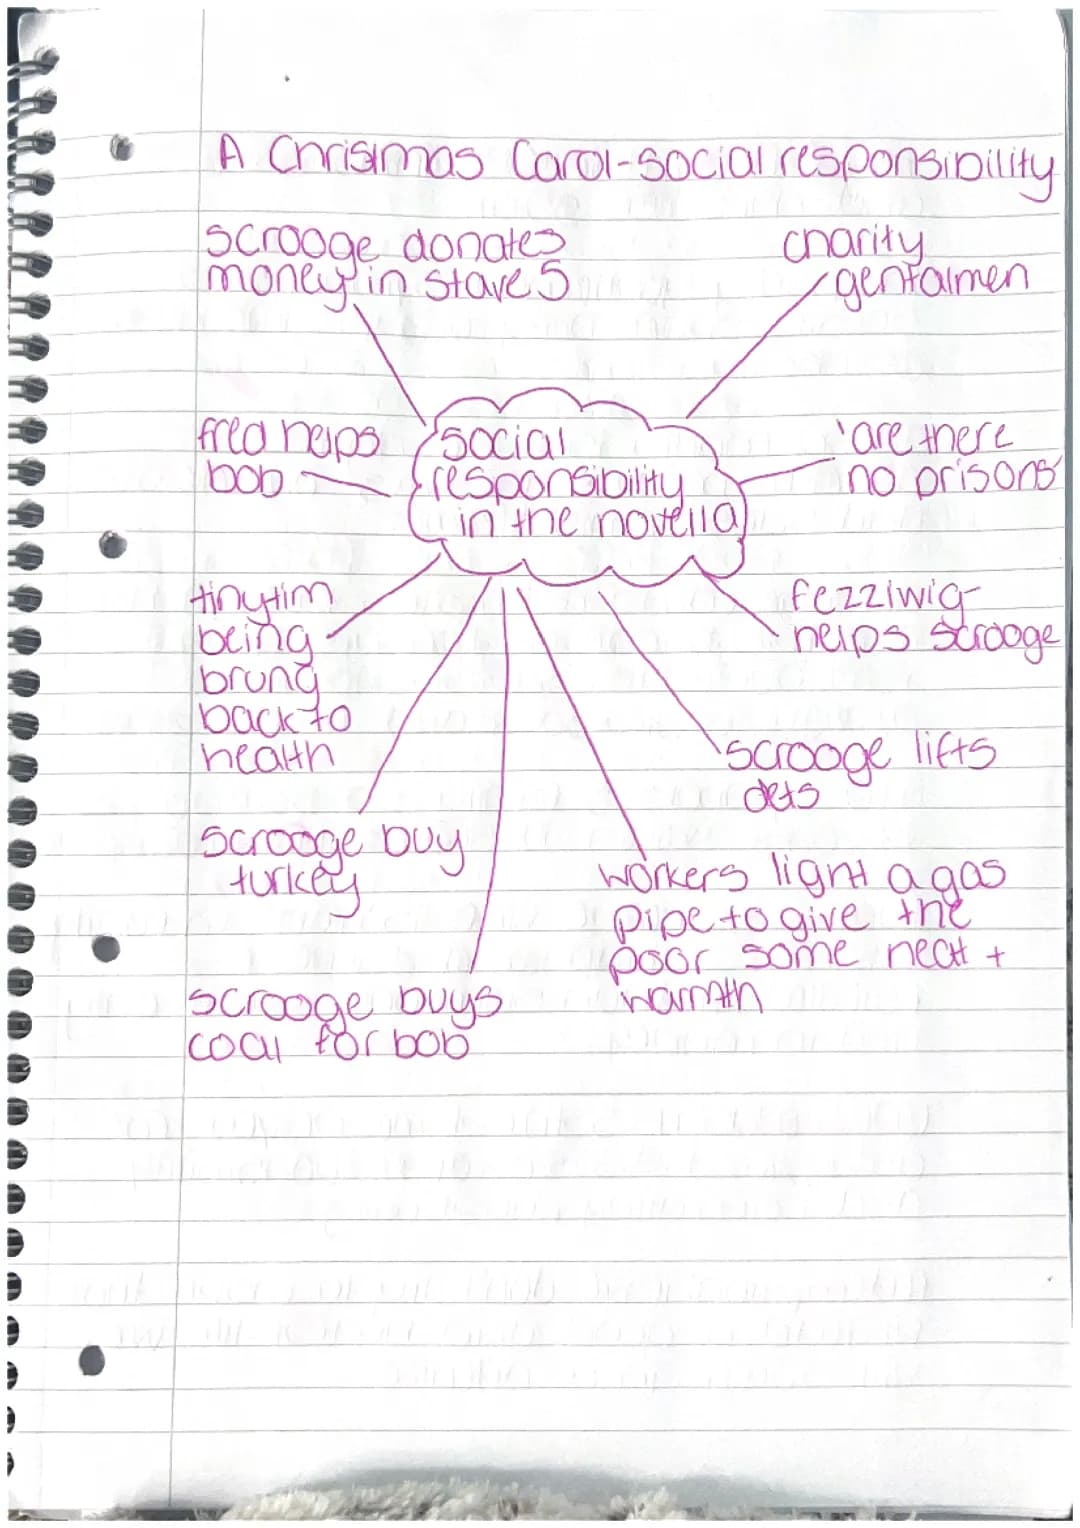 A Christmas Carol-social responsibility
scrooge donates
money in stave 5
charity
gentalmen
fred helps
bob
social
responsibility
in the novella
'are there
no prisons'
tiny tim
being
brung
back to
health
fezziwig
helps scrooge
scrooge lifts
dets
scrooge buy
turkey
workers light a gas
pipe to give the
poor some heat +
warmth
scrooge buys
coal for bob